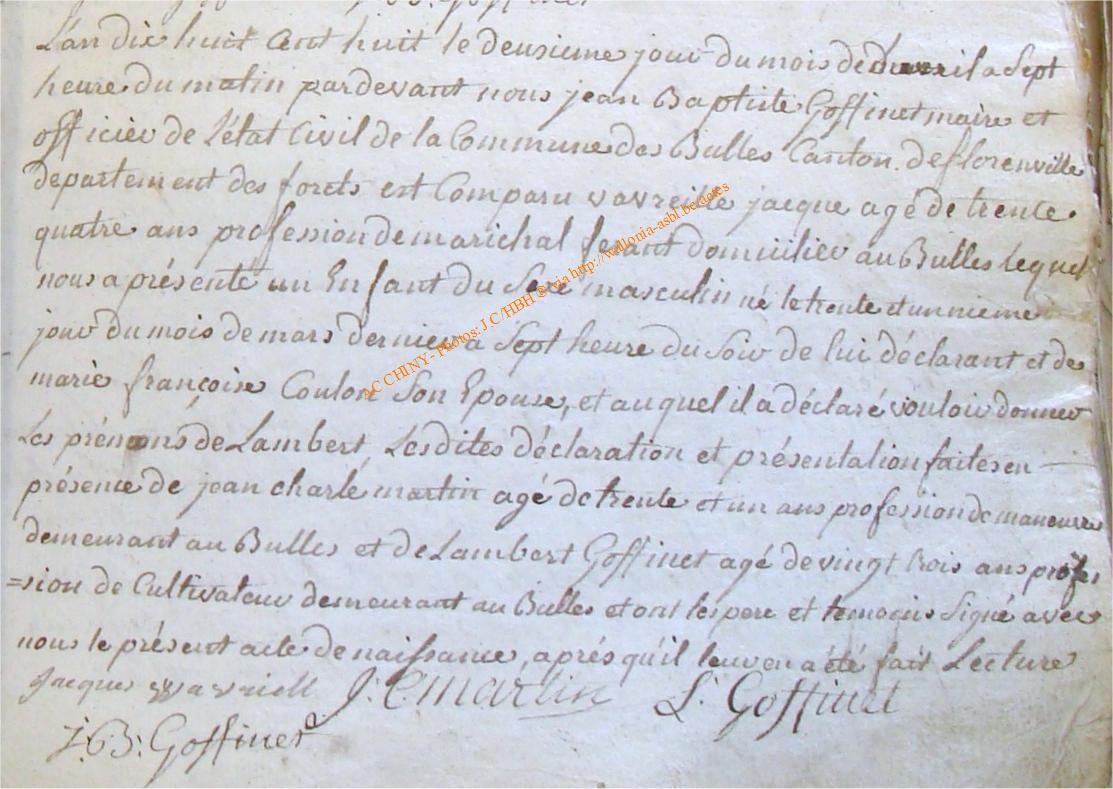 J.B. Goffinet
L'an dix huit cent huit le deusieme jour du mois de davril a Sept
heure du matin pardevant nous jean Baptiste Goffinet maire et
officier de L'état Civil de la Commune des Bulles Canton de florenville
departement des forets est Comparu vavreille jacque agé de trente
quatre ans profession de marichal ferant domicilier au Bulles lequel
nous a présenté un Enfant du Sexe masculin né le trente et unieme
jour du mois de mars dernier a Sept heure du Soir de lui déclarant et de
marie françoise Coulon Son Epouse, et auquel il a déclaré vouloir donner
Les prénoms de Lambert, Lesdites déclaration et présentation faites en
présence de jean charle martin agé de trente et un ans profession de maneuvre
demeurant au Bulles et de Lambert Goffinet agé de vingt trois ans profes
=sion de Cultivateur demeurant au Bulles et ont les pere et temoins Signé avec
nous le présent acte de naissance, aprés qu'il leur en a été fait Lecture
Jacques wavriell J. C. martin L. Goffinet
J.B. Goffinet
AC CHINY - Photos: J C/HBH ® via http://wallonia-asbl.be/actes